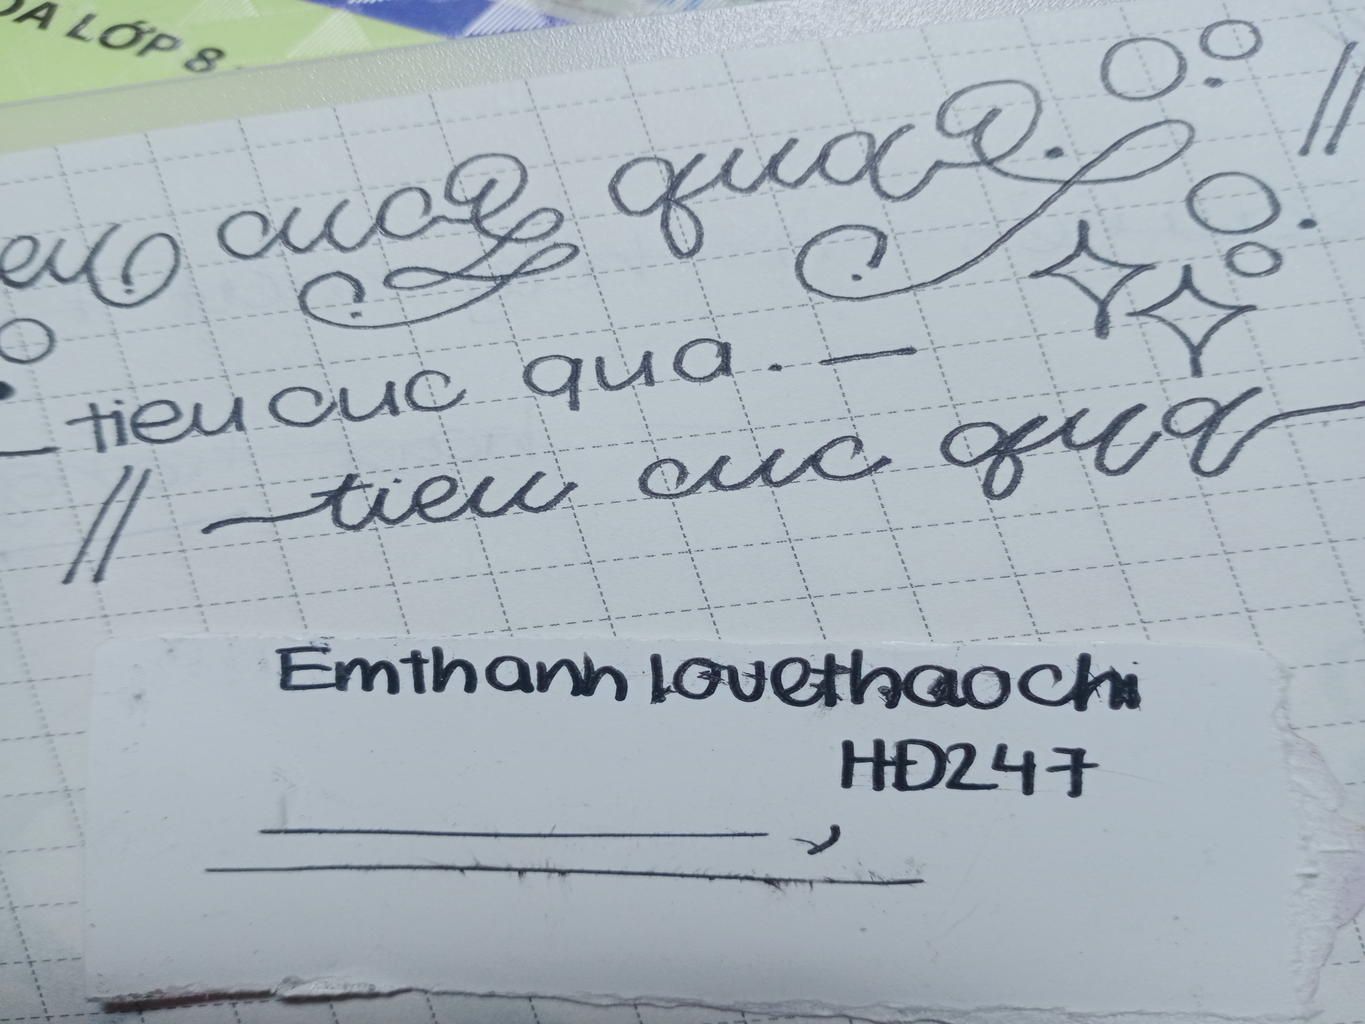 OA LỚP 8
eu cuc qua.
tieu cuc qua.
tieu cuc qua
Emthanh lovethaochi
HĐ247